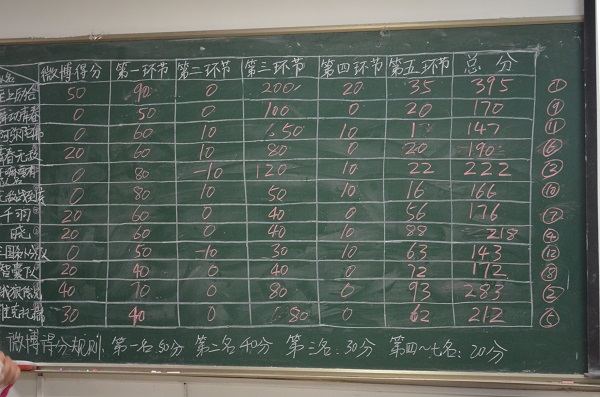 微博得分 第一环节 第二环节 第三环节 第四环节 第五环节 总分
50 90 0 200 20 35 395 ①
0 50 0 100 0 20 170 ⑨
0 60 10 50 10 147 ⑪
20 60 10 80 0 20 190 ⑥
0 80 -10 120 10 22 222 ③
0 80 10 50 10 16 166 ⑩
千羽 20 60 0 40 0 56 176 ⑦
20 60 0 40 10 88 218 ④
0 50 -10 30 10 63 143 ⑫
智囊队 20 40 0 40 0 72 172 ⑧
40 70 0 80 0 93 283 ②
30 40 0 80 0 62 212 ⑤
微博得分规则: 第一名:50分 第二名40分 第三名:30分 第四~七名:20分